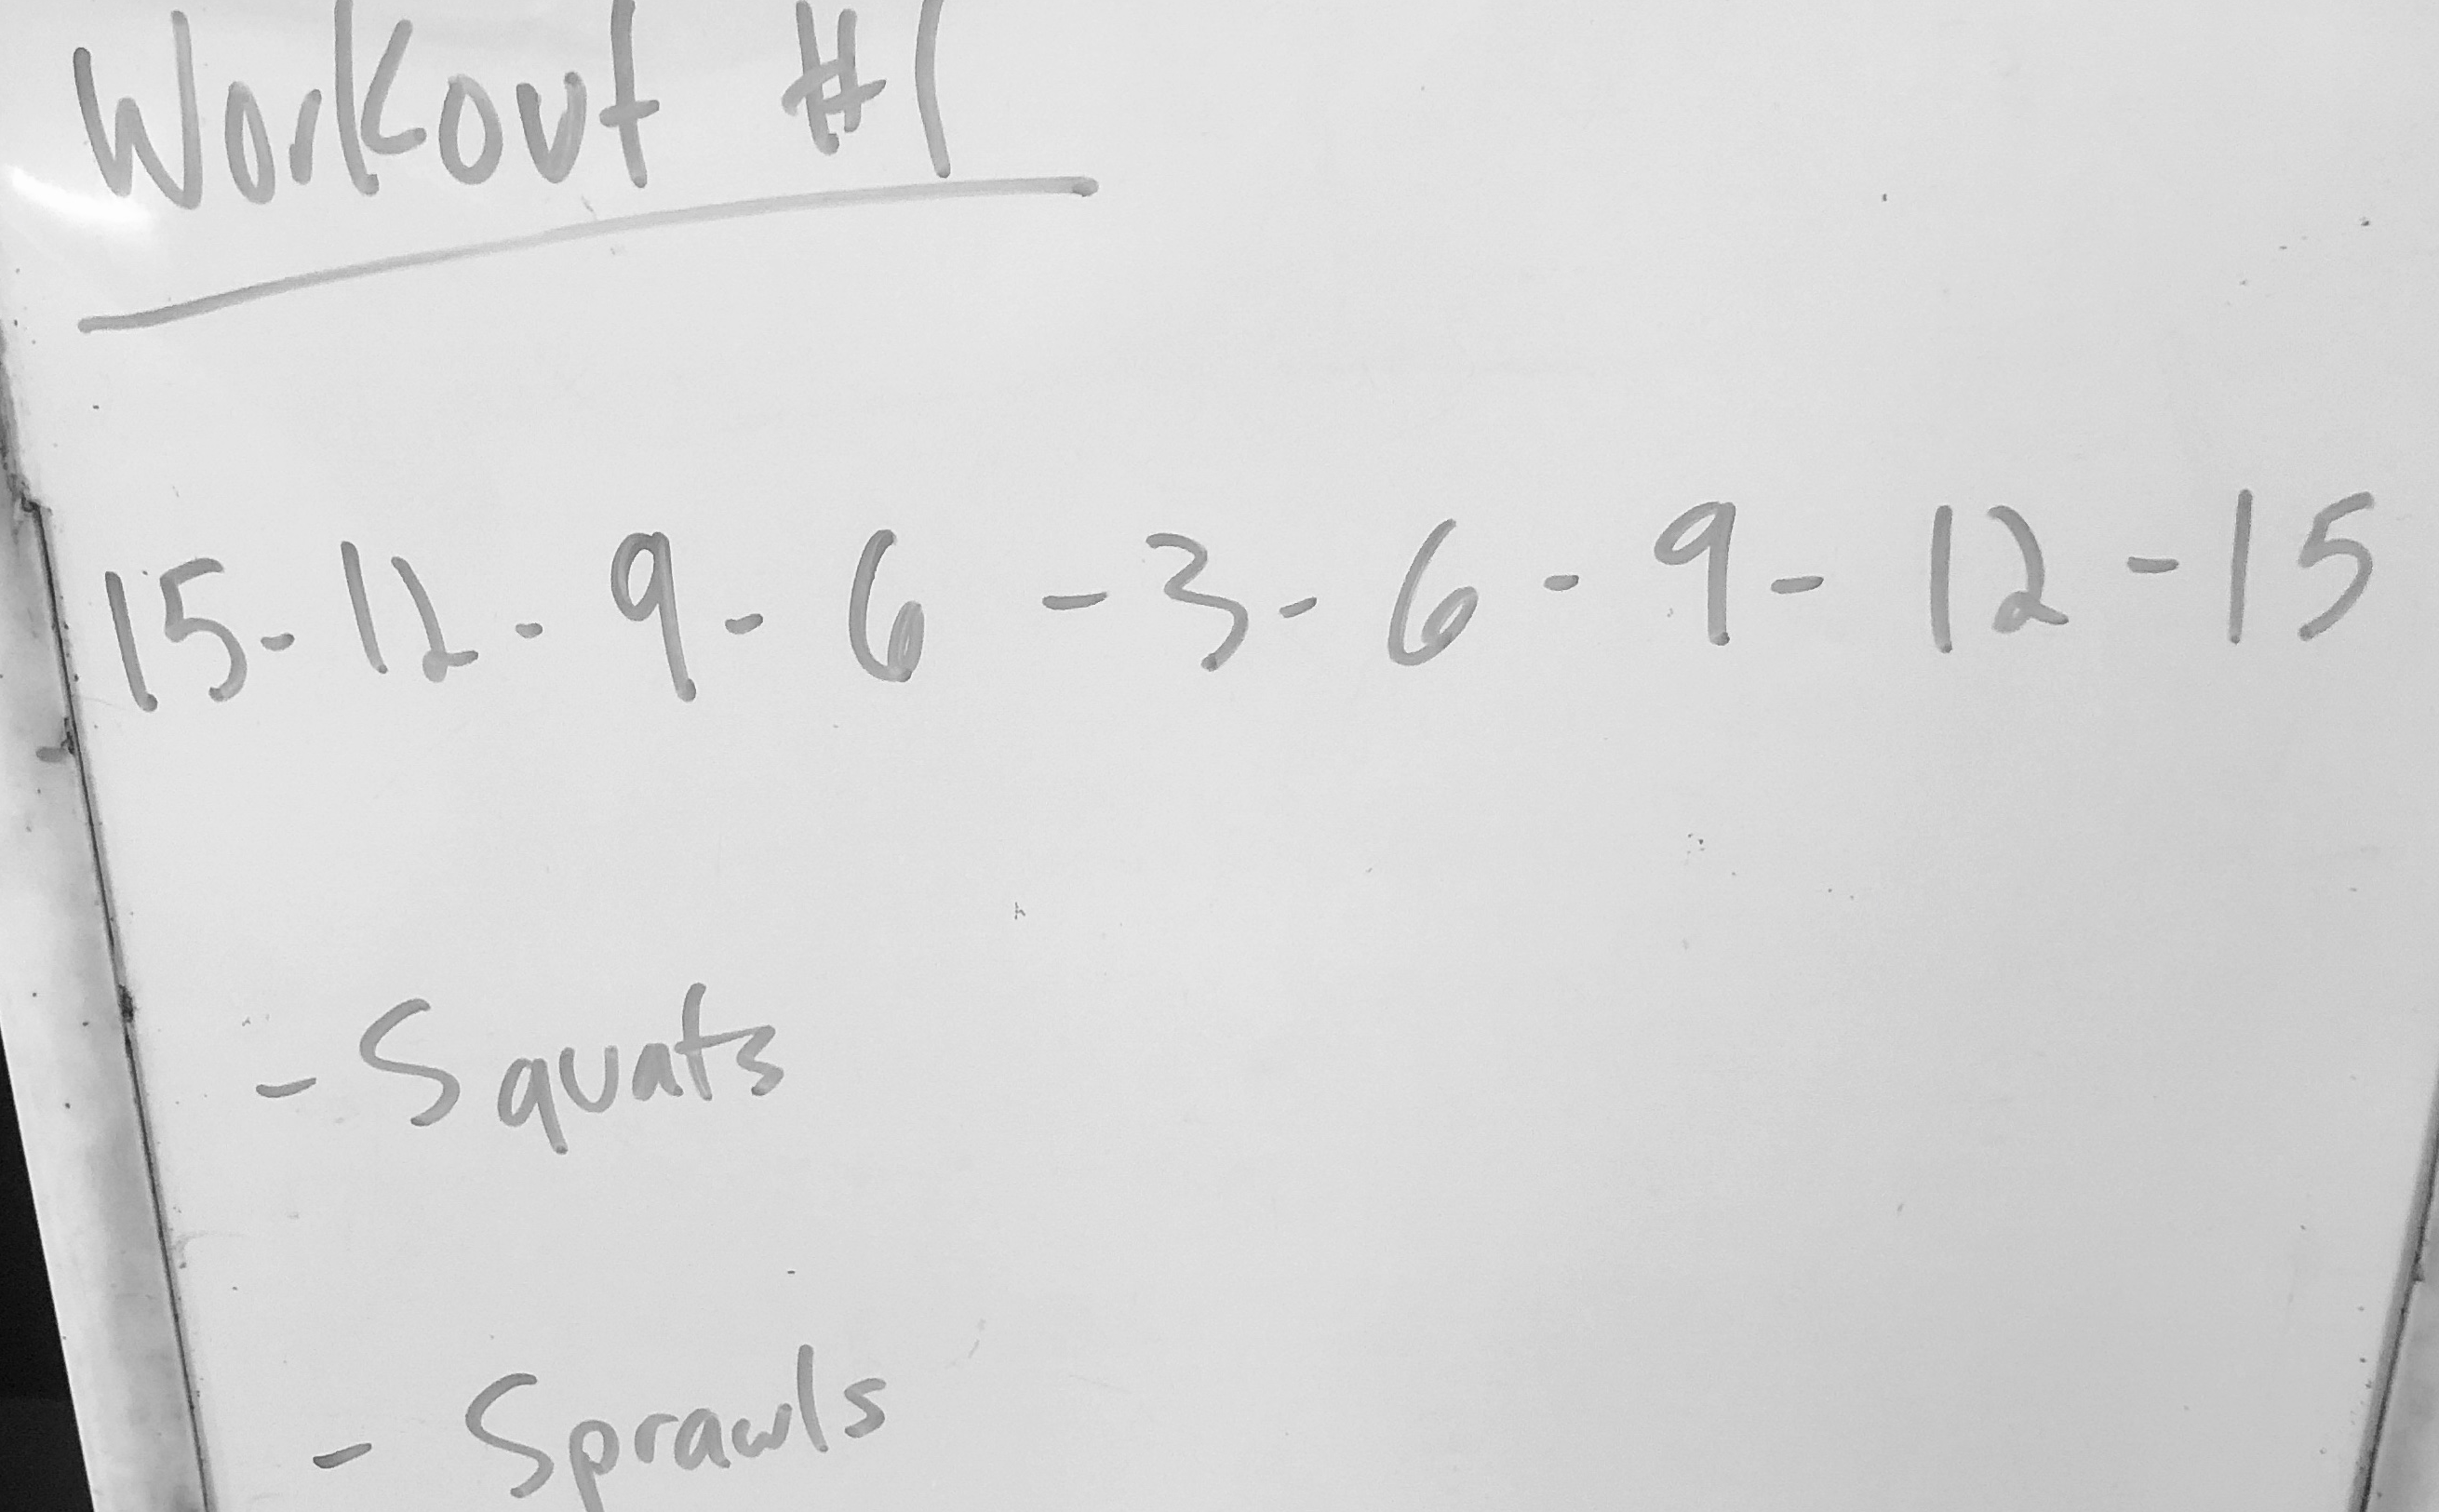 Workout #1
15 - 12 - 9 - 6 - 3 - 6 - 9 - 12 - 15
- Squats
- Sprawls